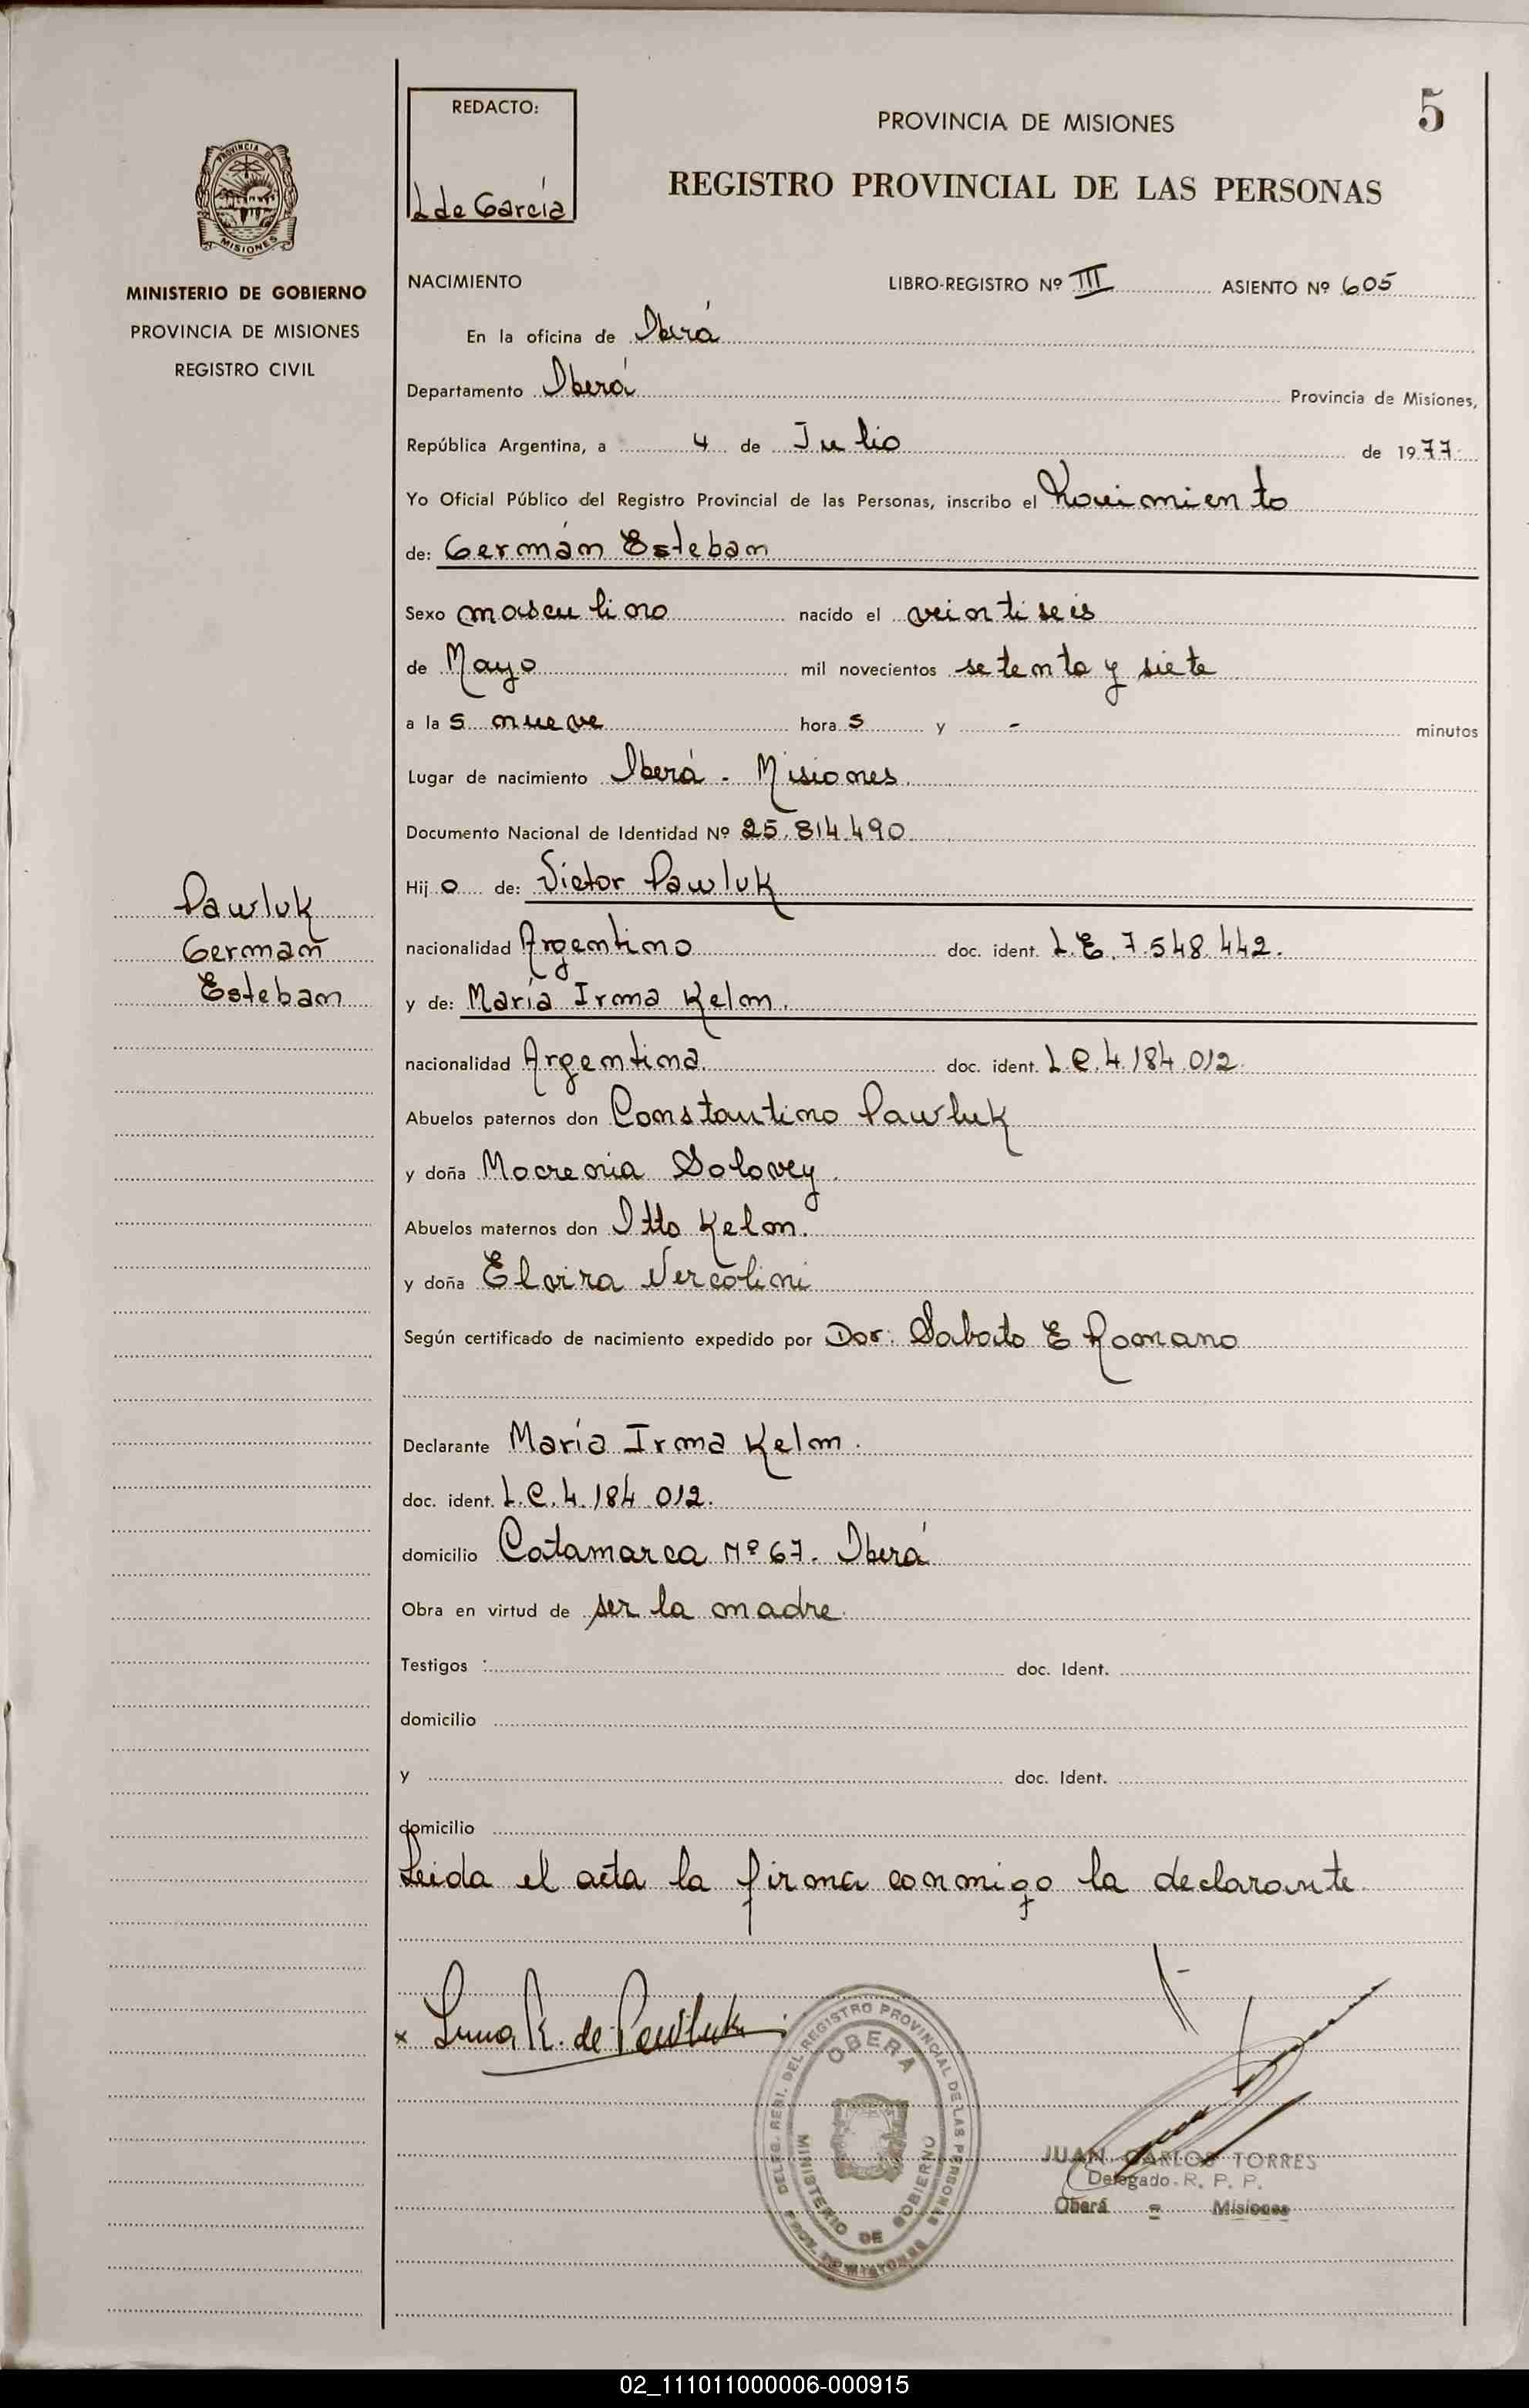 5
REDACTO:
L de García
PROVINCIA DE MISIONES
REGISTRO PROVINCIAL DE LAS PERSONAS
PROVINCIA DE
MISIONES
MINISTERIO DE GOBIERNO
PROVINCIA DE MISIONES
REGISTRO CIVIL
NACIMIENTO LIBRO-REGISTRO Nº III ASIENTO Nº 605
En la oficina de Oberá
Departamento Oberá Provincia de Misiones,
República Argentina, a 4 de Julio de 1977
Yo Oficial Público del Registro Provincial de las Personas, inscribo el Nacimiento
de: Germán Esteban
Sexo masculino nacido el veintiseis
de Mayo mil novecientos setenta y siete
a las nueve horas y - minutos
Lugar de nacimiento Oberá - Misiones.
Documento Nacional de Identidad Nº 25.814.490
Hijo de: Victor Pawluk
nacionalidad Argentino doc. ident. L.E. 7.548.442.
y de: María Irma Kelm.
nacionalidad Argentina. doc. ident. L.C. 4.184.012
Abuelos paternos don Constantino Pawluk
y doña Mocrenia Solovey.
Abuelos maternos don Otto Kelm.
y doña Elvira Vercolini
Según certificado de nacimiento expedido por Dor: Sabato E Romano
Declarante María Irma Kelm.
doc. ident. L.C. 4.184.012.
domicilio Catamarca Nº 67. Oberá
Obra en virtud de ser la madre.
Testigos : doc. Ident.
domicilio
y doc. Ident.
domicilio
Leida el acta la firma conmigo la declarante
Pawluk
German
Esteban
x Irma K. de Pawluk
DELEG. REGI. DEL REGISTRO PROVINCIAL DE LAS PERSONAS
OBERA
MINISTERIO DE GOBIERNO
PROV. DE MISIONES
JUAN CARLOS TORRES
Delegado R. P. P.
Oberá - Misiones
02_111011000006-000915